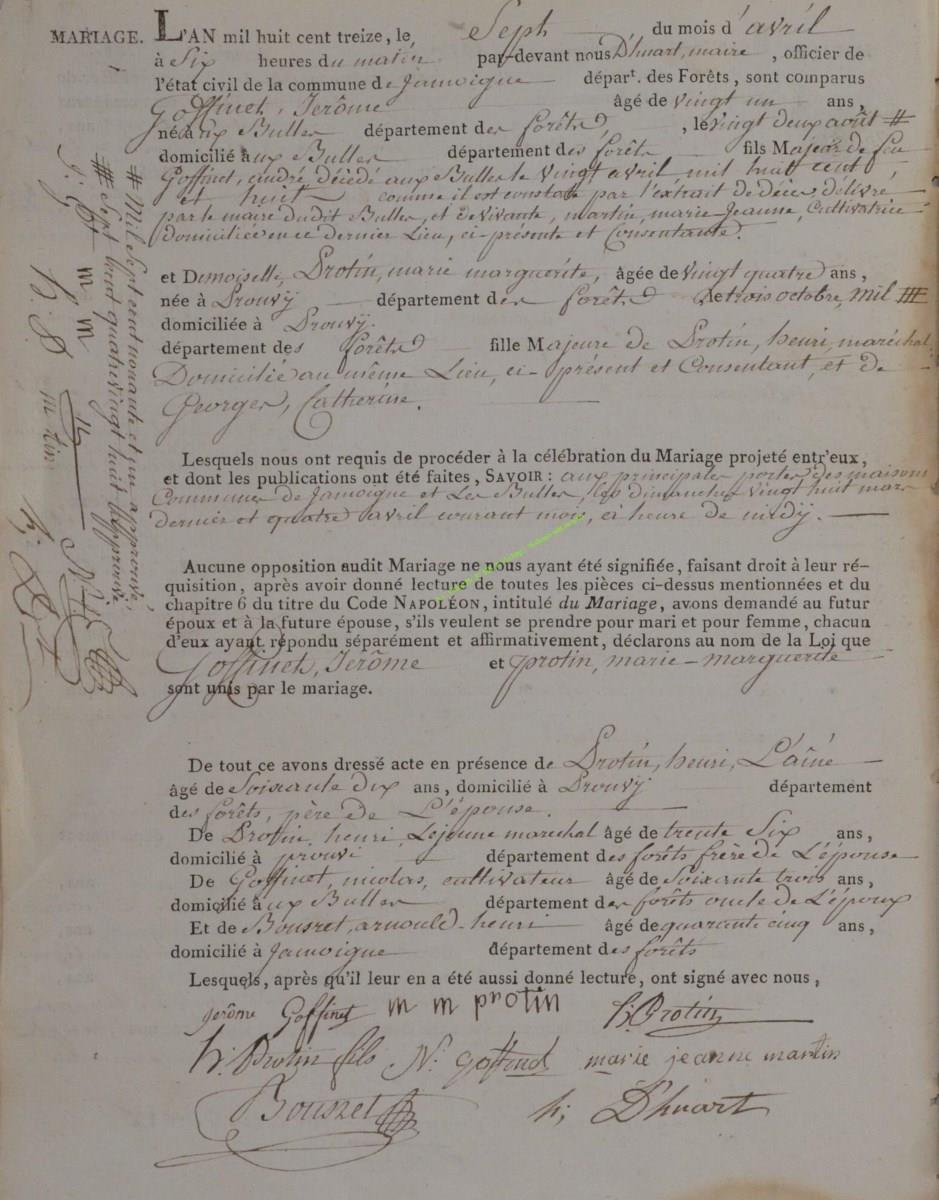 MARIAGE. L'AN mil huit cent treize, le Sept du mois d'avril
à Six heures du matin par-devant nous D'huart, maire, officier de
l'état civil de la commune de Jamoigne dépar.t des Forêts, sont comparus
Goffinet, Jerôme âgé de vingt un ans,
né aux Bulles département des forêts, le vingt deux août #
domicilié aux Bulles département des forêts fils Majeur de feu
Goffinet, andré décédé aux Bulles le vingt avril mil huit cent
et huit comme il est constaté par l'extrait de décès délivré
par le maire dudit Bulles, et de vivante, martin, marie Jeanne, Cultivatrice
domiciliée en ce dernier Lieu, ci-présente et Consentante.
et Demoiselle, Protin, marie marguerite, âgée de vingt quatre ans,
née à Prouvÿ département des forêts le trois octobre, mil ##
domiciliée à Prouvÿ.
département des forêts fille Majeure de Protin, henri, maréchal,
Domicilié au même Lieu, ci-présent et Consentant, et de
Georges, Catherine.
Lesquels nous ont requis de procéder à la célébration du Mariage projeté entr'eux,
et dont les publications ont été faites, SAVOIR : aux principales portes des maisons
Communes de Jamoigne et Les Bulles, les dimanches vingt huit mars
dernier et quatre avril courant mois, à heure de midÿ.
Aucune opposition audit Mariage ne nous ayant été signifiée, faisant droit à leur ré-
quisition, après avoir donné lecture de toutes les pièces ci-dessus mentionnées et du
chapitre 6 du titre du Code NAPOLÉON, intitulé du Mariage, avons demandé au futur
époux et à la future épouse, s'ils veulent se prendre pour mari et pour femme, chacun
d'eux ayant répondu séparément et affirmativement, déclarons au nom de la Loi que
Goffinet, Jerôme et protin, marie-marguerite
sont unis par le mariage.
De tout ce avons dressé acte en présence de Protin, henri, L'aîné
âgé de Soixante dix ans, domicilié à Prouvÿ département
des forêts, père de L'épouse.
De Protin, henri, Lejeune marechal âgé de trente Six ans,
domicilié à prouvi département des forêts frère de L'épouse
De Goffinet, nicolas, cultivateur âgé de Soixante trois ans,
domicilié aux Bulles département des forêts oncle de L'époux
Et de Bousret, arnould-henri âgé de quarante cinq ans,
domicilié à Jamoigne département des forêts
Lesquels, après qu'il leur en a été aussi donné lecture, ont signé avec nous,
Jerôme Goffinet m m protin h: Protin
h: Protin fils N. goffinet marie jeanne martin
Bousret h: D'huart
# Mil Sept cent nonante et un approuvé,
## Sept cent quatre vingt huit approuvé